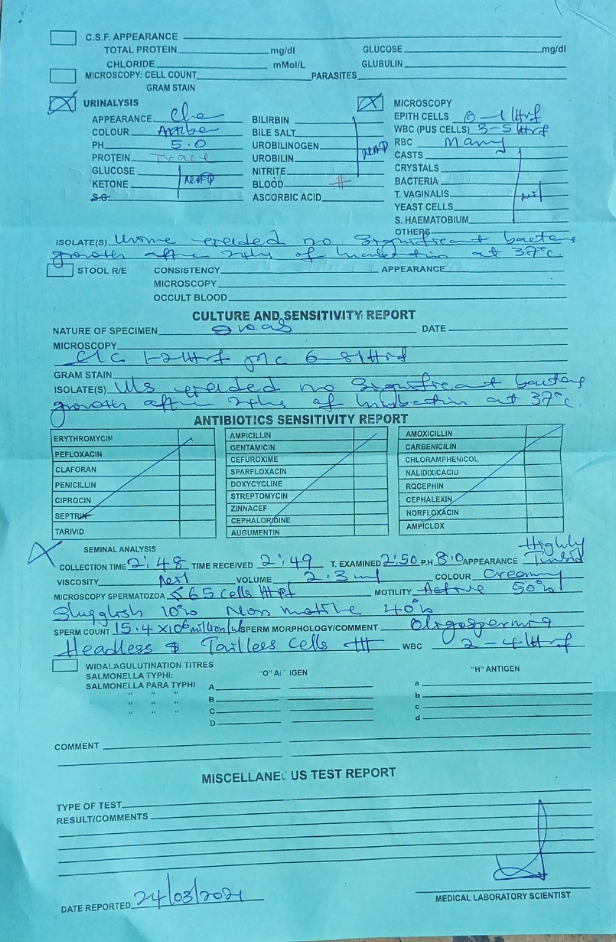 C.S.F. APPEARANCE
TOTAL PROTEIN mg/dl GLUCOSE mg/dl
CHLORIDE mMol/L GLUBULIN
MICROSCOPY: CELL COUNT PARASITES
GRAM STAIN
URINALYSIS
APPEARANCE
COLOUR Amber
PH 5.0
PROTEIN Trace
GLUCOSE
KETONE
S.G.
BILIRBIN
BILE SALT
UROBILINOGEN
UROBILIN
NITRITE
BLOOD
ASCORBIC ACID
MICROSCOPY
EPITH CELLS 0-1/Hpf
WBC (PUS CELLS) 3-5/Hpf
RBC Many
CASTS
CRYSTALS
BACTERIA Nil
T. VAGINALIS
YEAST CELLS
S. HAEMATOBIUM
OTHERS
ISOLATE(S) Urine yielded no significant bacteria
growth after 24hrs of incubation at 37°C
STOOL R/E CONSISTENCY APPEARANCE
MICROSCOPY
OCCULT BLOOD
CULTURE AND SENSITIVITY REPORT
NATURE OF SPECIMEN DATE
MICROSCOPY
E/C 1-2/Hpf P/C 6-8/Hpf
GRAM STAIN
ISOLATE(S) yielded no significant bacteria
growth after 24hrs of incubation at 37°C.
ANTIBIOTICS SENSITIVITY REPORT
ERYTHROMYCIN
PEFLOXACIN
CLAFORAN
PENICILLIN
CIPROCIN
SEPTRIN
TARIVID
AMPICILLIN
GENTAMICIN
CEFUROXIME
SPARFLOXACIN
DOXYCYCLINE
STREPTOMYCIN
ZINNACEF
CEPHALORIDINE
AUGUMENTIN
AMOXICILLIN
CARBENICILIN
CHLORAMPHENICOL
NALIDIXICACID
ROCEPHIN
CEPHALEXIN
NORFLOXACIN
AMPICLOX
SEMINAL ANALYSIS
COLLECTION TIME 2:48 TIME RECEIVED 2:49 T. EXAMINED 2:50 PH 8.0 APPEARANCE Highly Turbid
VISCOSITY VOLUME 2.3ml COLOUR Creamy
MICROSCOPY SPERMATOZOA 65 cells/Hpf MOTILITY Active 50%
Sluggish 10% Non motile 40%
SPERM COUNT 15.4 x10⁶ million/ SPERM MORPHOLOGY/COMMENT Oligospermia
Headless & Tailless Cells +++ WBC 2-4/Hpf
WIDALAGULUTINATION TITRES "O" ANTIGEN "H" ANTIGEN
SALMONELLA TYPHI:
SALMONELLA PARA TYPHI A a
" " " B b
" " " C c
" " " D d
COMMENT
MISCELLANEOUS TEST REPORT
TYPE OF TEST
RESULT/COMMENTS
DATE REPORTED 24/03/2021
MEDICAL LABORATORY SCIENTIST